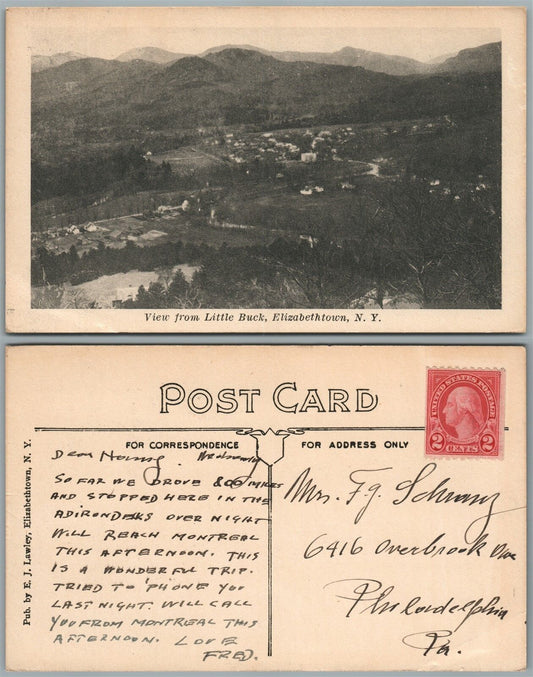 View from Little Buck, Elizabethtown, N. Y.
POST CARD
FOR CORRESPONDENCE
FOR ADDRESS ONLY
UNITED STATES POSTAGE
2 CENTS 2
Pub. by E. J. Lawley, Elizabethtown, N. Y.
Dear Wednesday
SO FAR WE DROVE 800 MILES
AND STOPPED HERE IN THE
ADIRONDEKS OVER NIGHT
WILL REACH MONTREAL
THIS AFTERNOON. THIS
IS A WONDERFUL TRIP.
TRIED TO 'PHONE YOU
LAST NIGHT. WILL CALL
YOU FROM MONTREAL THIS
AFTERNOON. LOVE
FRED.
Mrs. F. G. Schwarz
6416 Overbrook Ave
Philadelphia
Pa.